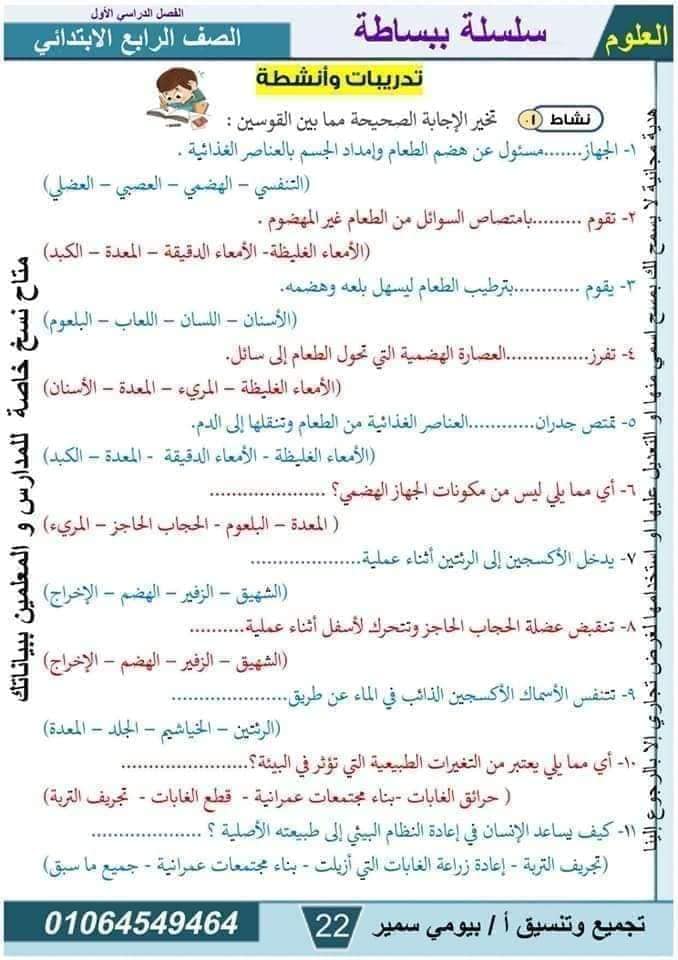 الفصل الدراسي الأول
العلوم
سلسلة ببساطة
الصف الرابع الابتدائي
تدريبات وأنشطة
نشاط ٠١ تخير الإجابة الصحيحة مما بين القوسين :
١- الجهاز.......مسئول عن هضم الطعام وإمداد الجسم بالعناصر الغذائية .
(التنفسي – الهضمي – العصبي – العضلي)
٢- تقوم .........بامتصاص السوائل من الطعام غير المهضوم .
(الأمعاء الغليظة- الأمعاء الدقيقة – المعدة – الكبد)
٣- يقوم ............بترطيب الطعام ليسهل بلعه وهضمه.
(الأسنان – اللسان – اللعاب – البلعوم)
٤- تفرز...............العصارة الهضمية التي تحول الطعام إلى سائل.
(الأمعاء الغليظة – المريء – المعدة – الأسنان)
٥- تمتص جدران............العناصر الغذائية من الطعام وتنقلها إلى الدم.
(الأمعاء الغليظة - الأمعاء الدقيقة - المعدة – الكبد)
٦- أي مما يلي ليس من مكونات الجهاز الهضمي؟ .....................
( المعدة – البلعوم - الحجاب الحاجز – المريء)
٧- يدخل الأكسجين إلى الرئتين أثناء عملية....................
(الشهيق – الزفير – الهضم – الإخراج)
٨- تنقبض عضلة الحجاب الحاجز وتتحرك لأسفل أثناء عملية..........
(الشهيق – الزفير – الهضم – الإخراج)
٩- تتنفس الأسماك الأكسجين الذائب في الماء عن طريق.....................
(الرئتين – الخياشيم – الجلد – المعدة)
١٠- أي مما يلي يعتبر من التغيرات الطبيعية التي تؤثر في البيئة؟..................
( حرائق الغابات -بناء مجتمعات عمرانية - قطع الغابات - تجريف التربة)
١١- كيف يساعد الإنسان في إعادة النظام البيئي إلى طبيعته الأصلية ؟ ....................
(تجريف التربة - إعادة زراعة الغابات التي أزيلت - بناء مجتمعات عمرانية - جميع ما سبق)
هدية مجانية لا يسمح لك بمسح اسمي منها او التعديل عليها او استخدامها لغرض تجاري إلا بالرجوع إلينا
متاح نسخ خاصة للمدارس و المعلمين ببياناتك
تجميع وتنسيق أ / بيومي سمير
22
01064549464